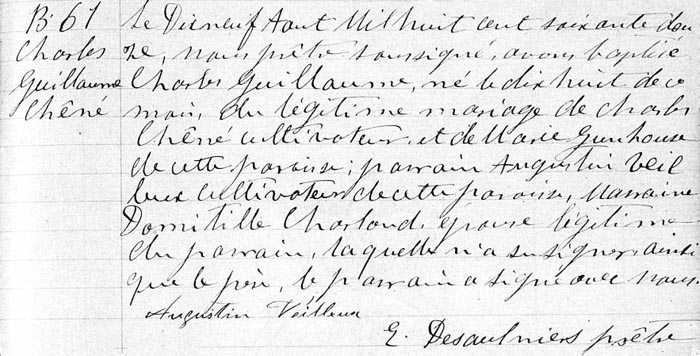 B. 61
Charles
Guillaume
Chêné
Le Dixneuf Aout Mil huit cent soixante dou
ze, nous prêtre soussigné, avons baptisé
Charles Guillaume, né le dix huit de ce
mois, du légitime mariage de Charles
Chêné cultivateur et de Marie
de cette paroisse; parrain Augustin Veil
leux cultivateur de cette paroisse, Marraine
Domitille Charland, épouse légitime
du parrain, laquelle n'a su signer, ainsi
que le père, le parrain a signé avec nous.
Augustin Veilleux
E. Desaulniers prêtre